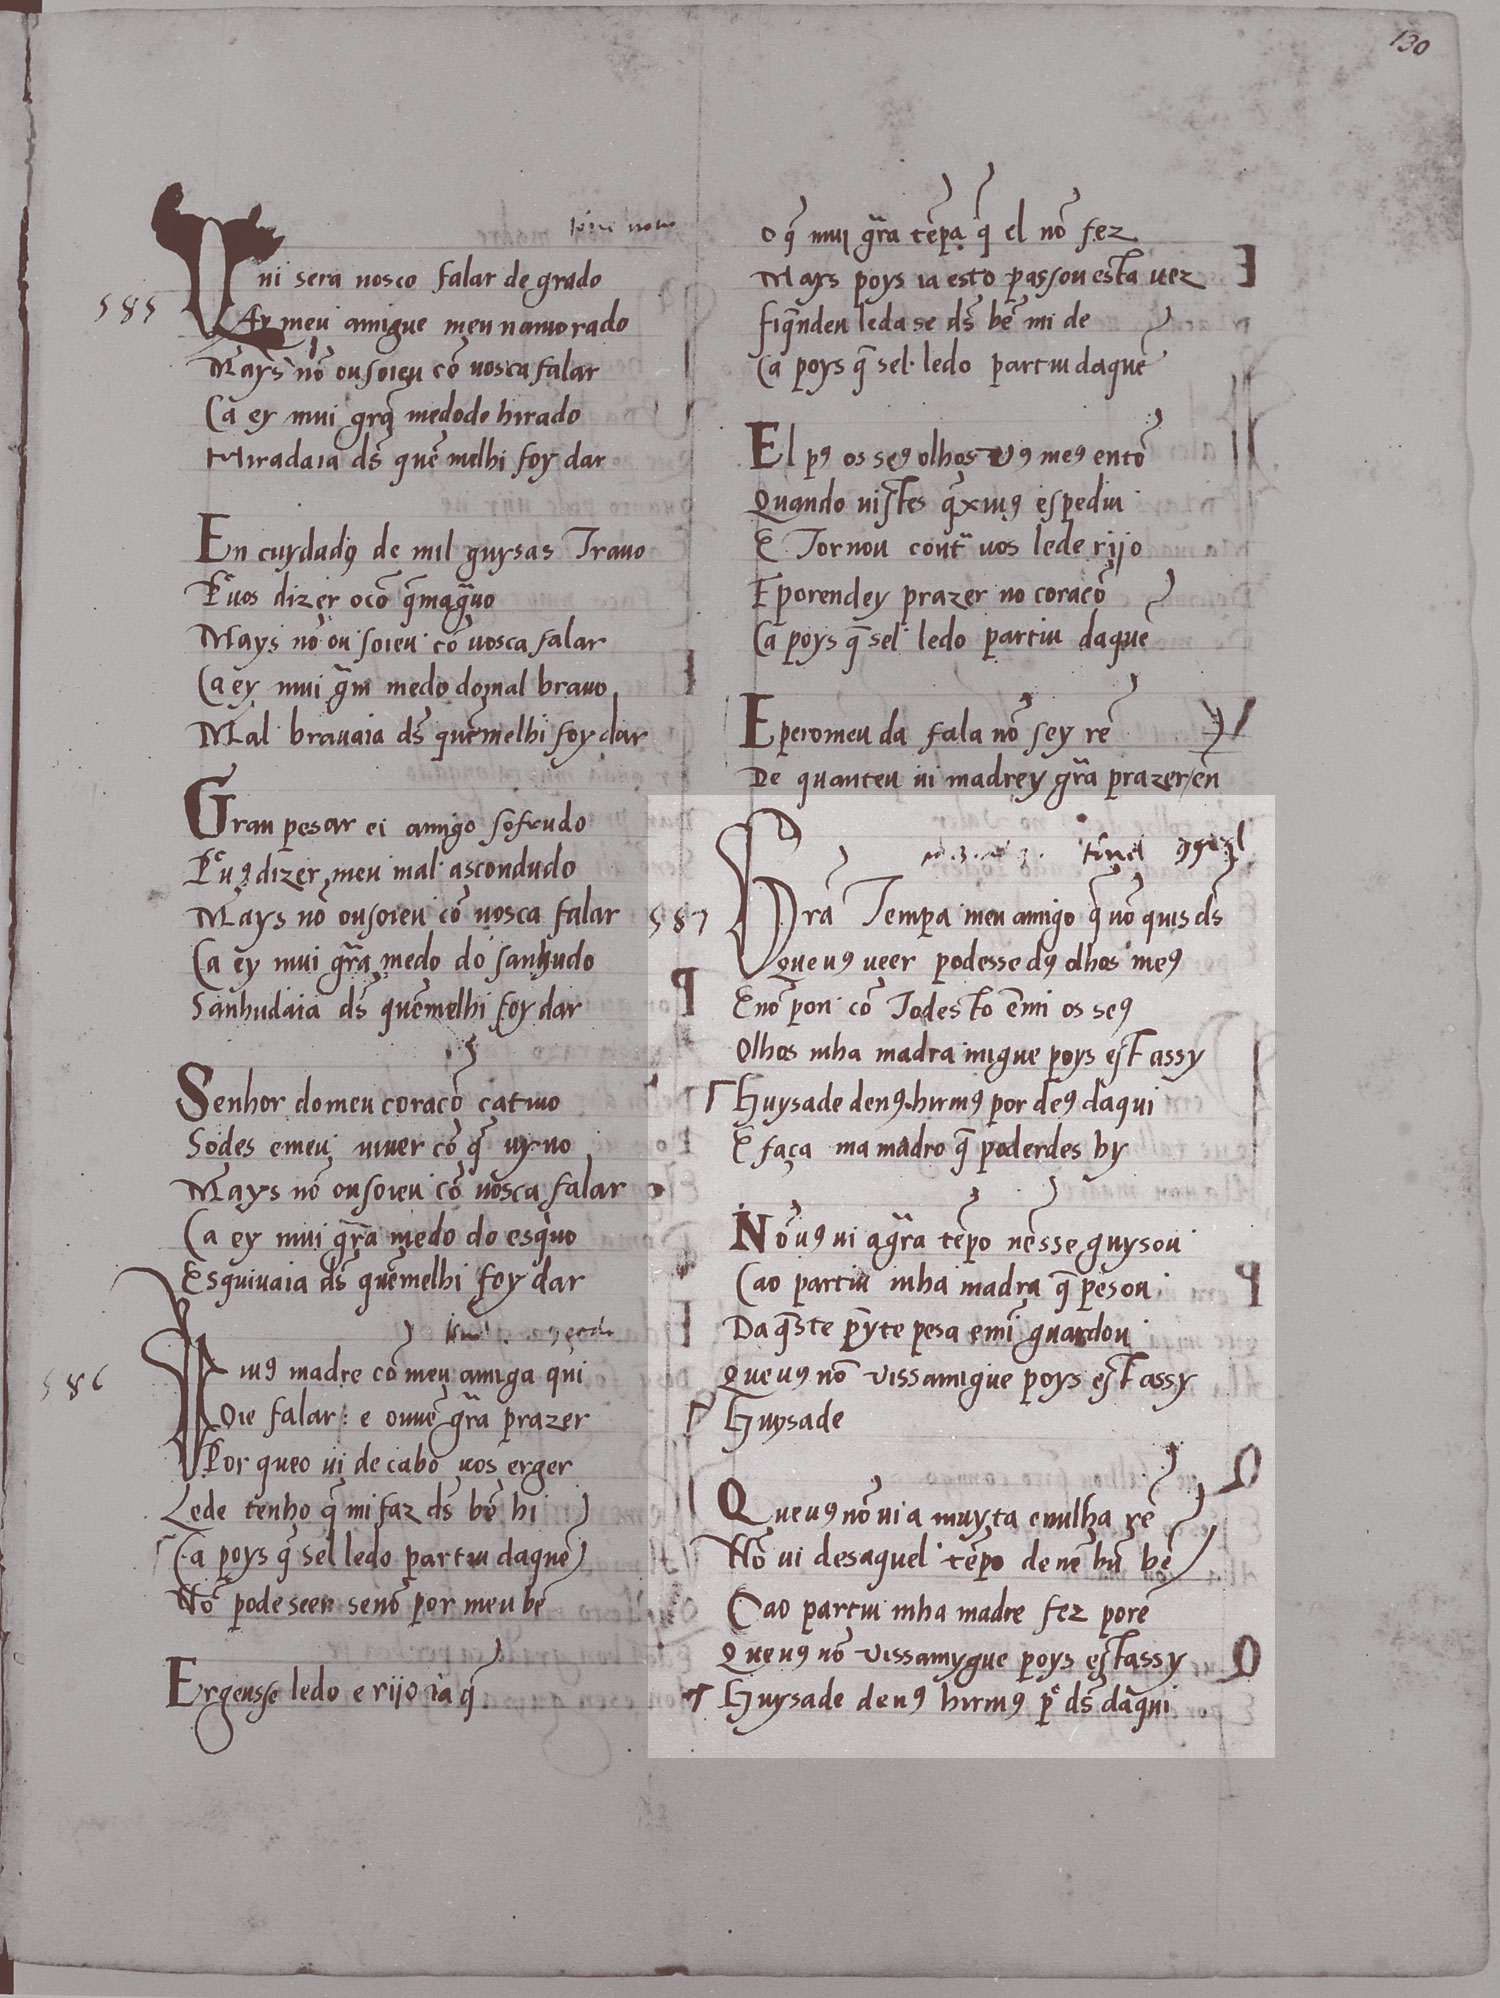 130
585
ni sera nosco falar de grado
Ay meu amigue meu namorado
Mays nõ ousoieu cõ uosca falar
Ca ey mui grã medodo hirado
Miradaia ds̃ quẽ melhi foy dar
En cuydadꝯ de mil guysas Trauo
Pͬ uos dizer ocõ q̃maguo
Mays nõ ou soieu cõ uosca falar
Ca ey mui grã medo domal brauo
Mal brauaia ds̃ quẽmelhi foy dar
Gran pesar ei amigo sofrudo
Pͬ uꝯ dizer meu mal ascondudo
Mays nõ ousoieu cõ uosca falar
Ca ey mui grã medo do sanhudo
Sanhudaia ds̃ quẽmelhi foy dar
Senhor domeu coraçõ catiuo
Sodes emeu uiuer cõ q̃ uyuo
Mays nõ ousoieu cõ uosca falar
Ca ey mui grã medo do esquo
Esquiuaia ds̃ quẽmelhi foy dar
586
uꝯ madre cõ meu amiga qui
Oie falar: e ouuẽ grã prazer
Por queo ui de cabo uos erger
Lede tenho q̃ mi faz ds̃ bẽ hi
Ca poys q̃ sel ledo partiu daquẽ
Nõ pode seer senõ por meu bẽ
Ergeusse ledo e rijo ia q̃
O q̃ mui grã tẽpa q̃ el nõ fez
Mays poys ia esto passou esta uez
fiq̃ndeu ledase ds̃ bẽ mi de
Ca poys q̃ sel ledo partiu daquẽ
El pꝯ os seꝯ olhos uꝯ meꝯ entõ
Quando uistes q̃xiuꝯ espediu
E Tornou contͣ uos lede rijo
E porendey prazer no coraçõ
Ca poys q̃ sel ledo partiu daquẽ
E peromeu da fala nõ sey rẽ
De quanteu ui madrey grã prazer en
587
Grã Tempa meu amigo q̃ nõ quis ds̃
Que uꝯ ueer podesse dꝯ olhos meꝯ
E nõ pon cõ Todesto ẽmi os seꝯ
Olhos mha madra migue poys est assy
Guysade deuꝯ hirmꝯ por deꝯ daqui
E faça ma madro q̃ poderdes hy
Nõ uꝯ ui agrã tẽpo nẽsse guysou
Cao partiu mha madra q̃ pesou
Da q̃ste p̃yte pesa emĩ guardou
Queuꝯ nõ uissamigue poys est assy
Guysade
Queuꝯ nõ ui a muyta cnulha rẽ
Nõ ui desaquel tẽpo denẽ hũ bẽ
Cao partiu mha madre fez porẽ
Queuꝯ nõ uissamygue poys estassy
Guysade deuꝯ hirmꝯ pͬ ds̃ daqui